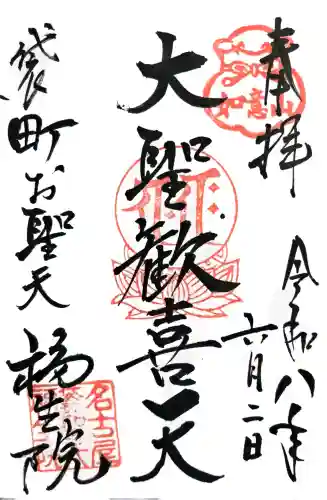 奉拝
令和八年
六月二日
大聖歓喜天
袋町お聖天
福生院
如意山
名古屋